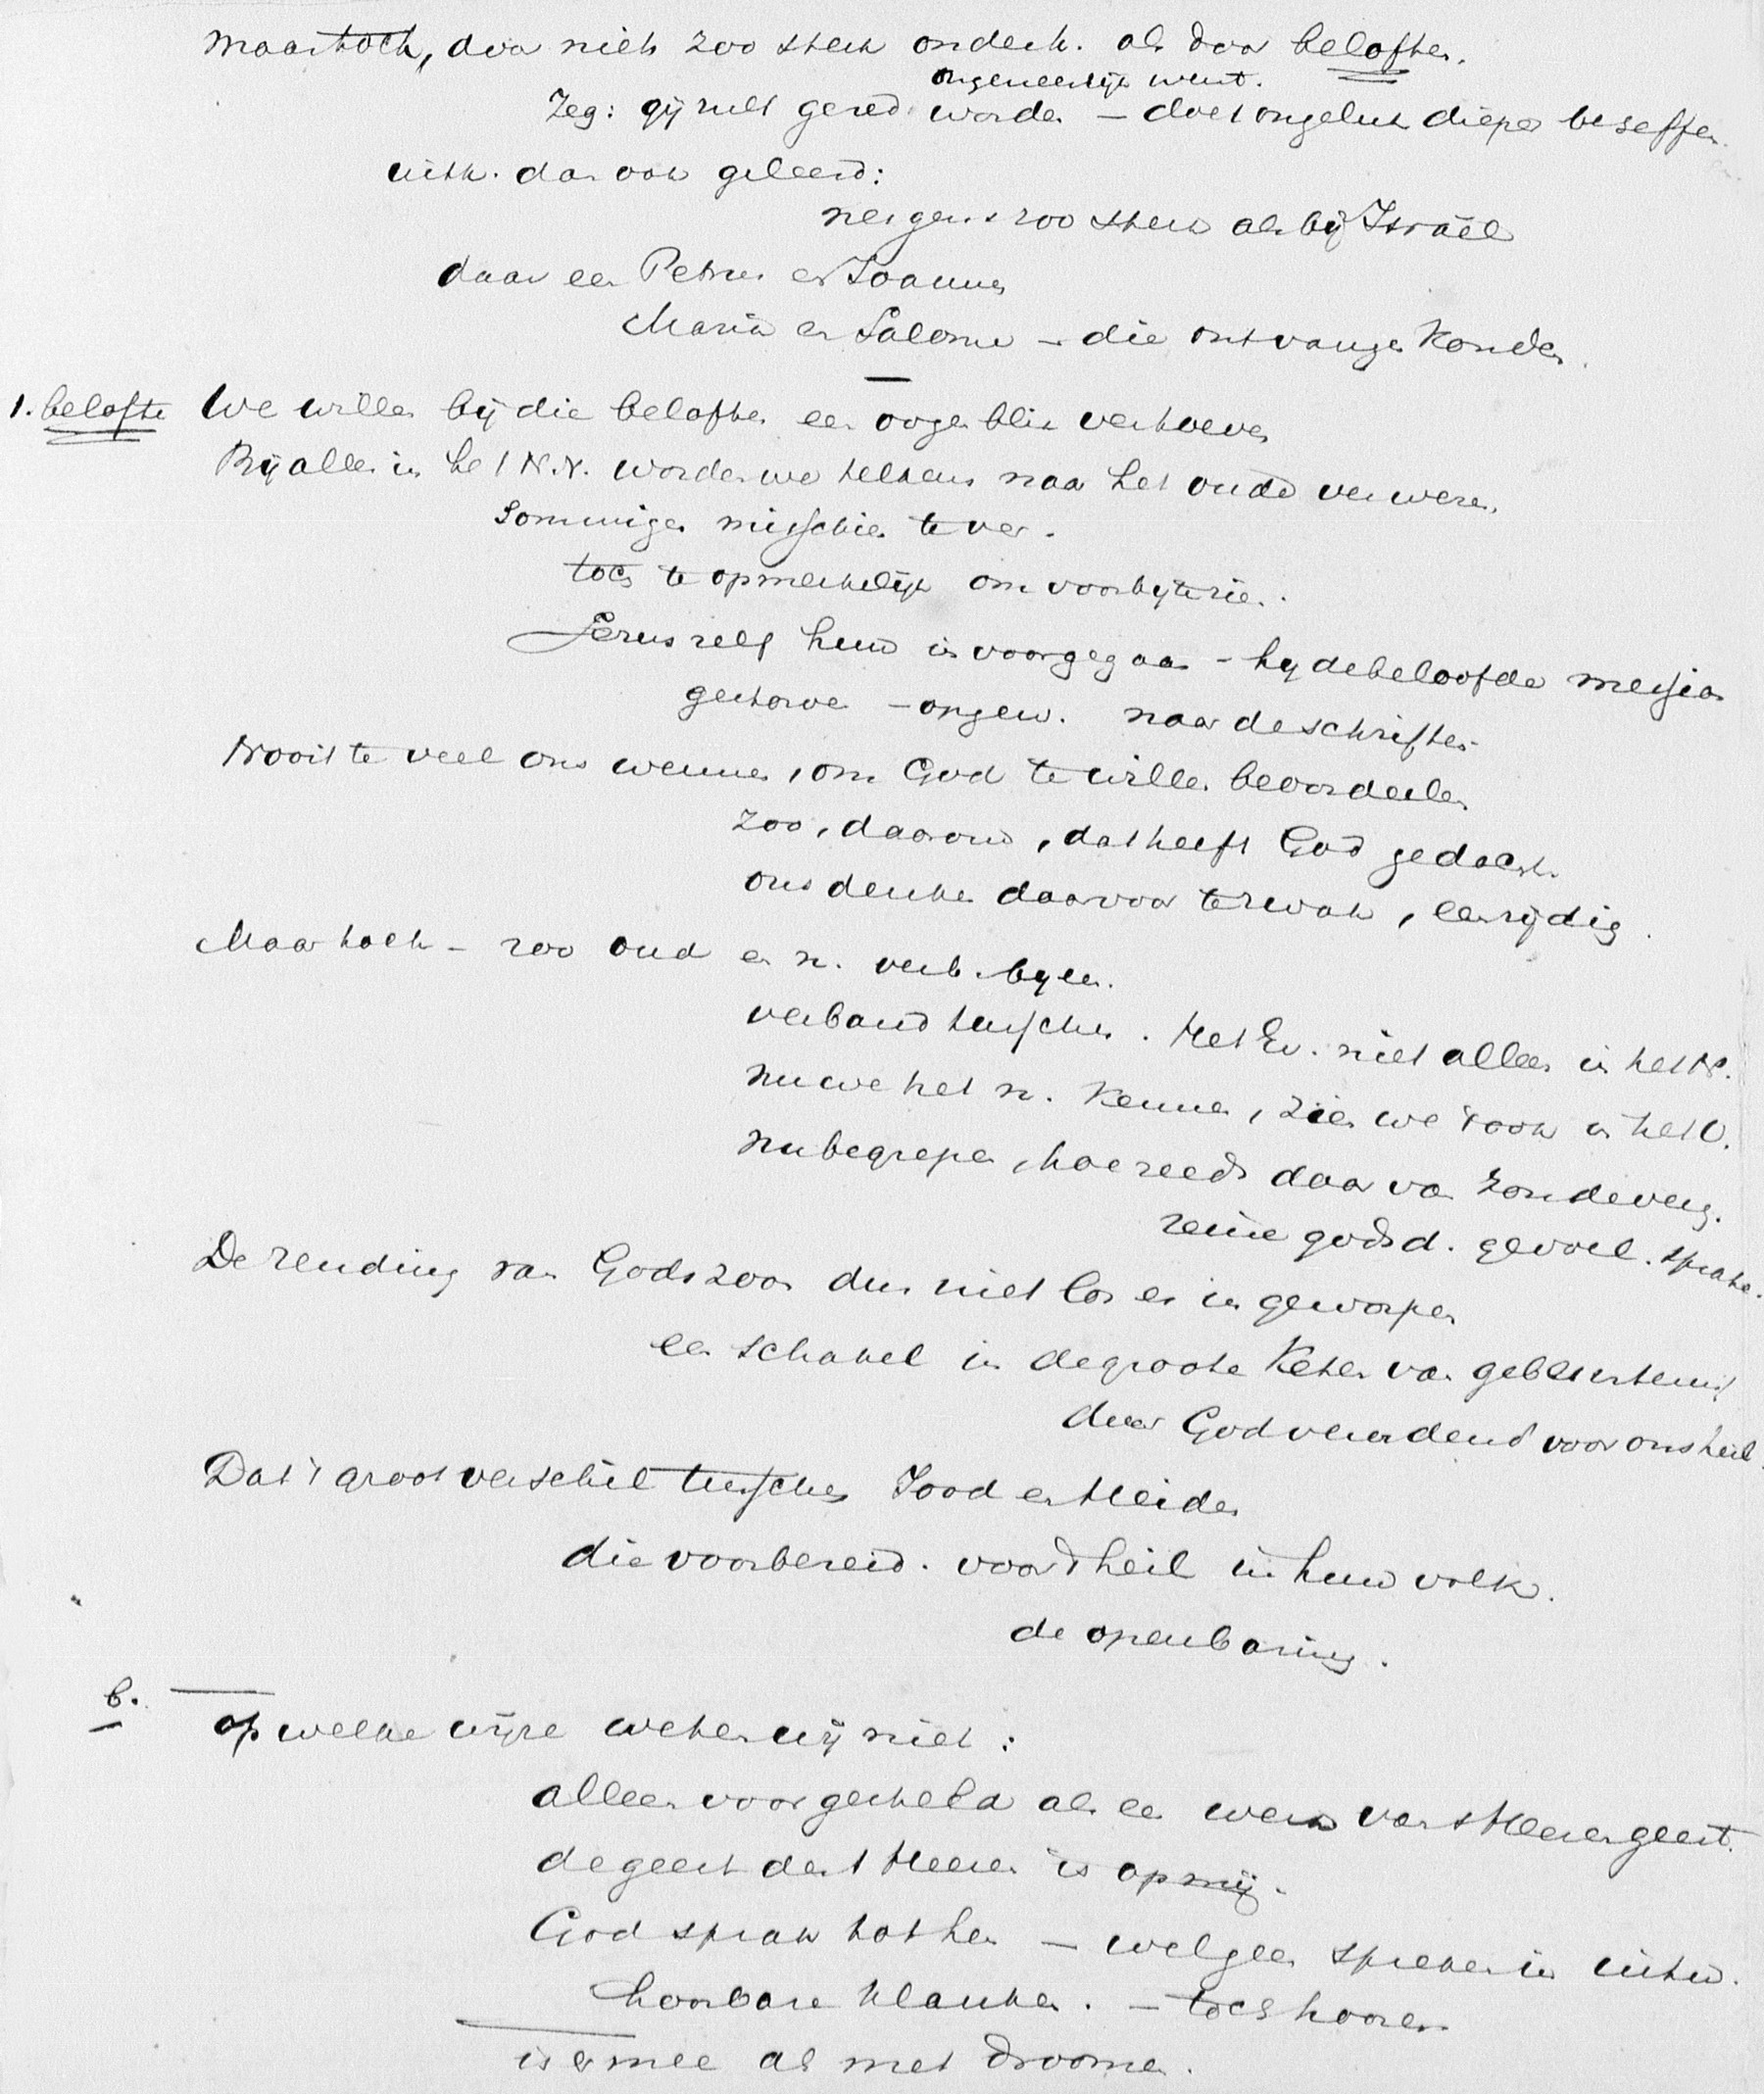 Maar toch, door niets zoo sterk onderh. als door beloften.
ongeneeslijk went.
Zeg: gij zult gered worden – doet ongeluk dieper beseffen.
uitk. dan ook geleerd:
nergens zoo sterk als bij Israël
daar een Petrus en Joannes
Maria en Salome – die ontvangen konden.
1. belofte We willen bij die beloften een oogenblik vertoeven
Bij alles in het N.V. worden we telkens naar het oude verwezen.
Sommigen misschien te ver.
toch te opmerkelijk om voorbij te zien.
Jezus zelf hun is voorgegaan – hij de beloofde messias
gestorven – opgew. naar de schriften
Nooit te veel ons wennen, om God te willen beoordeelen
zoo, daarom, dat heeft God gedacht.
ons denken daarvoor te zwak, eenzijdig.
Maar toch – zoo oud en n. verb. bijeen.
verband tusschen. Het Ev. niet alleen in het N.
nu we het n. kennen, zien we 't ook in het O.
nu begrepen, hoe reeds daar van zondeverg.
reine godsd. gevoel. sprake.
De zending van Gods zoon dus niet los er in geworpen
een schakel in de groote keten van gebeurtenis
door God verordend voor ons heil.
Dat 't groot verschil tusschen Jood en Heiden
die voorbereid. voor 't heil in hun volk.
de openbaring.
b.
op welke wijze weten wij niet:
alleen voorgesteld als een werk van 's Heeren geest.
de geest des Heeren is op mij.
God sprak tot hen – wel geen spreken in uitw.
hoorbare klanken. – toch hooren
is er mee als met droomen.